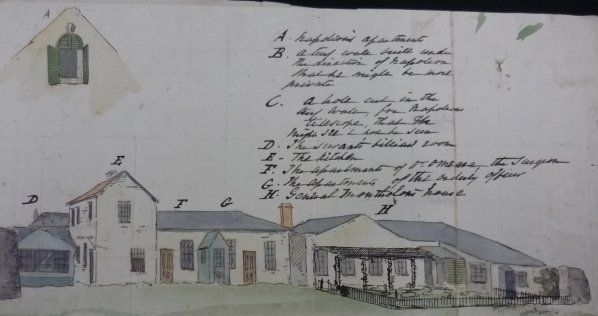 A
A. Napoleon's apartments
B. A turf wall built under
the direction of Napoleon
that he might be more
private
C. A hole cut in the
turf wall, for Napoleons
telescope, that he
might see & not be seen
D. The servants billiard room
E - The kitchen
F. The apartments of Dr. Omeara, the surgeon
G. The apartments of the orderly officer
H. General Montholons house
D E F G H